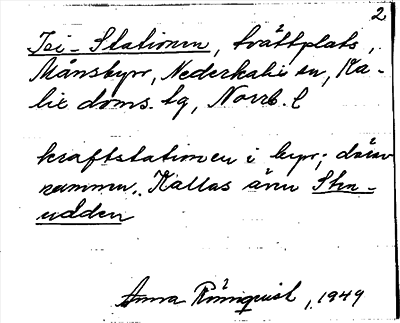 2
Tei-Stationen, tvättplats,
Månsbyn, Nederkalix sn, Ka-
lix doms. tg, Norrb. l
kraftstationen i byn; därav
namnen. Kallas även Sten-
udden
Anna Rönnquist, 1949